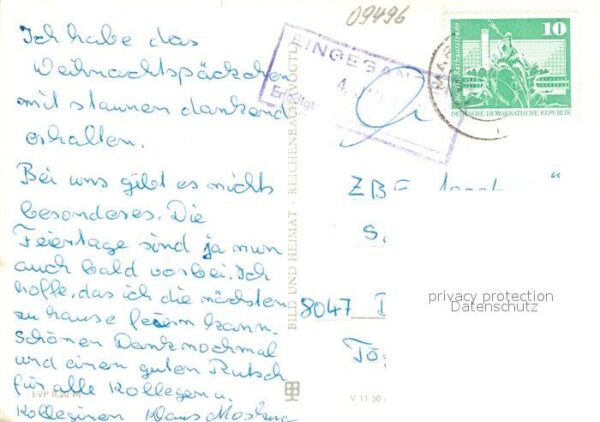 09496
Ich habe das
Weihnachtspäckchen
mit staunen dankend
erhalten.
Bei uns gibt es nichts
besonderes. Die
Feiertage sind ja nun
auch bald vorbei. Ich
hoffe, das ich die nächsten
zu hause feiern kann.
Schönen Dank nochmal
und einen guten Rutsch
für alle Kollegen u.
Kolleginen Klaus
EVP 0,20 M
BILD UND HEIMAT · REICHENBACH (VOGTL)
EINGEGANG
Erledigt
10
DEUTSCHE DEMOKRATISCHE REPUBLIK
ZBE
S.
8047
privacy protection
Datenschutz
V 11 50